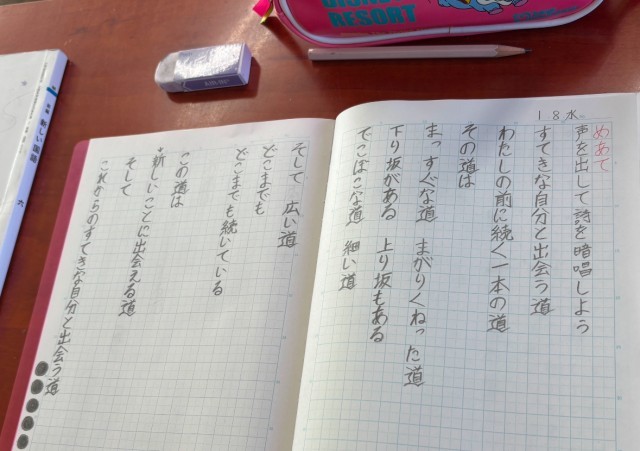 RESORT
新しい国語 六
18水
めあて
声を出して詩を暗唱しよう
すてきな自分と出会う道
わたしの前に続く一本の道
その道は
まっすぐな道 まがりくねった道
下り坂がある 上り坂もある
でこぼこな道 細い道
そして 広い道
どこまでも
どこまでも続いている
この道は
新しいことに出会える道
そして
これからのすてきな自分と出会う道